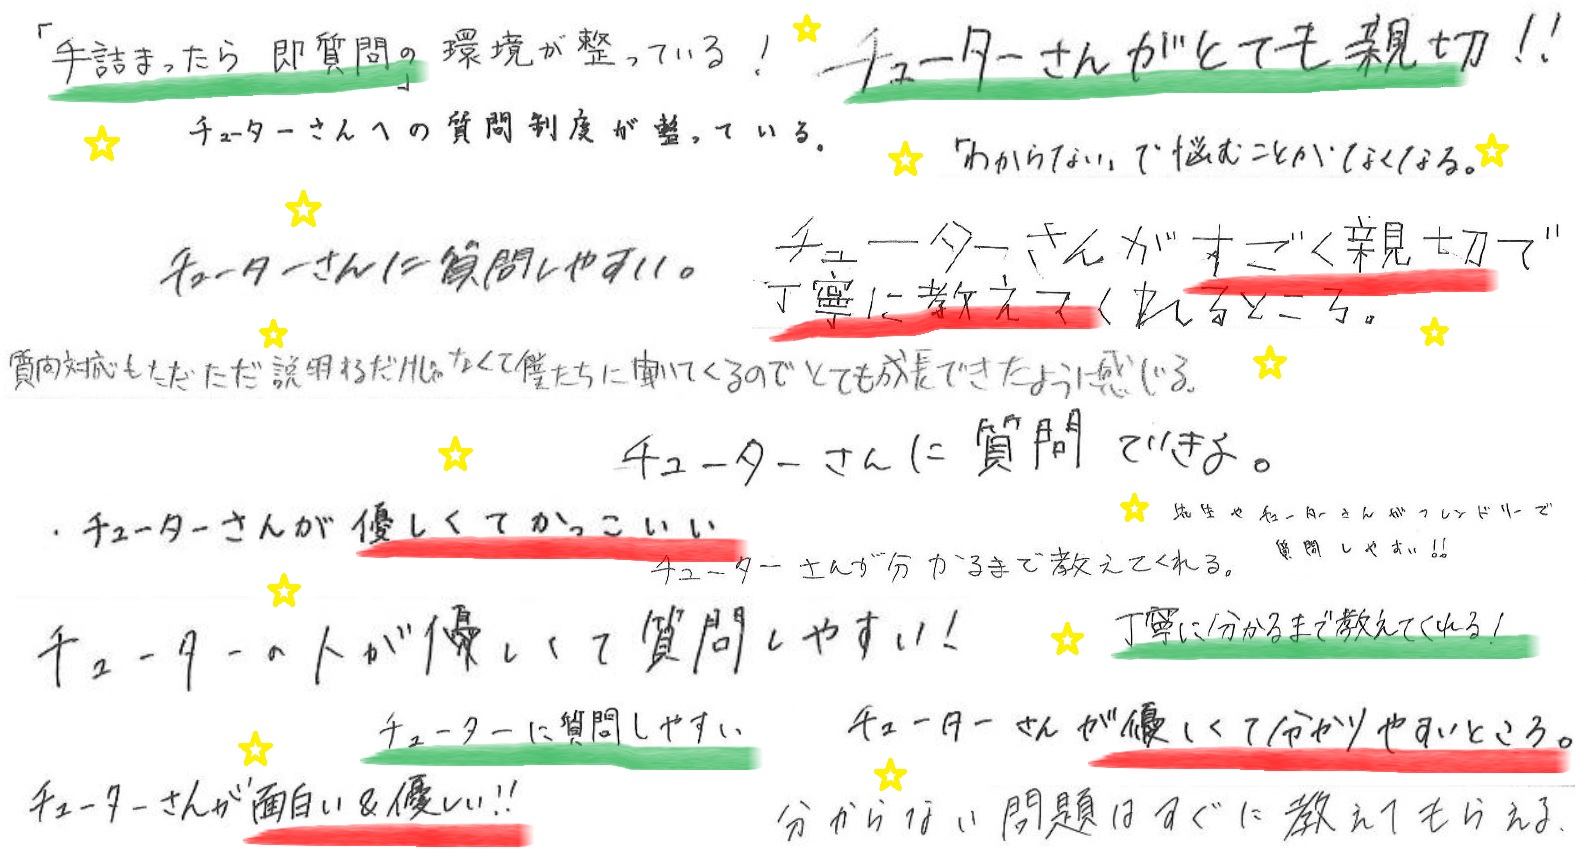 「手詰まったら 即質問の」環境が整っている！
チューターさんがとても親切!!
チューターさんへの質問制度が整っている。
「わからない」で悩むことがなくなる。
チューターさんに質問しやすい。
チューターさんがすごく親切で
丁寧に教えてくれるところ。
質問対応もただただ説明するだけじゃなくて僕たちに聞いてくるのでとても成長できたように感じる。
チューターさんに質問できる。
・チューターさんが優しくてかっこいい
先生やチューターさんがフレンドリーで
質問しやすい!!
チューターさんが分かるまで教えてくれる。
丁寧に分かるまで教えてくれる!
チューターの人が優しくて質問しやすい!
チューターに質問しやすい
チューターさんが優しくて分かりやすいところ。
チューターさんが面白い&優しい!!
分からない問題はすぐに教えてもらえる.